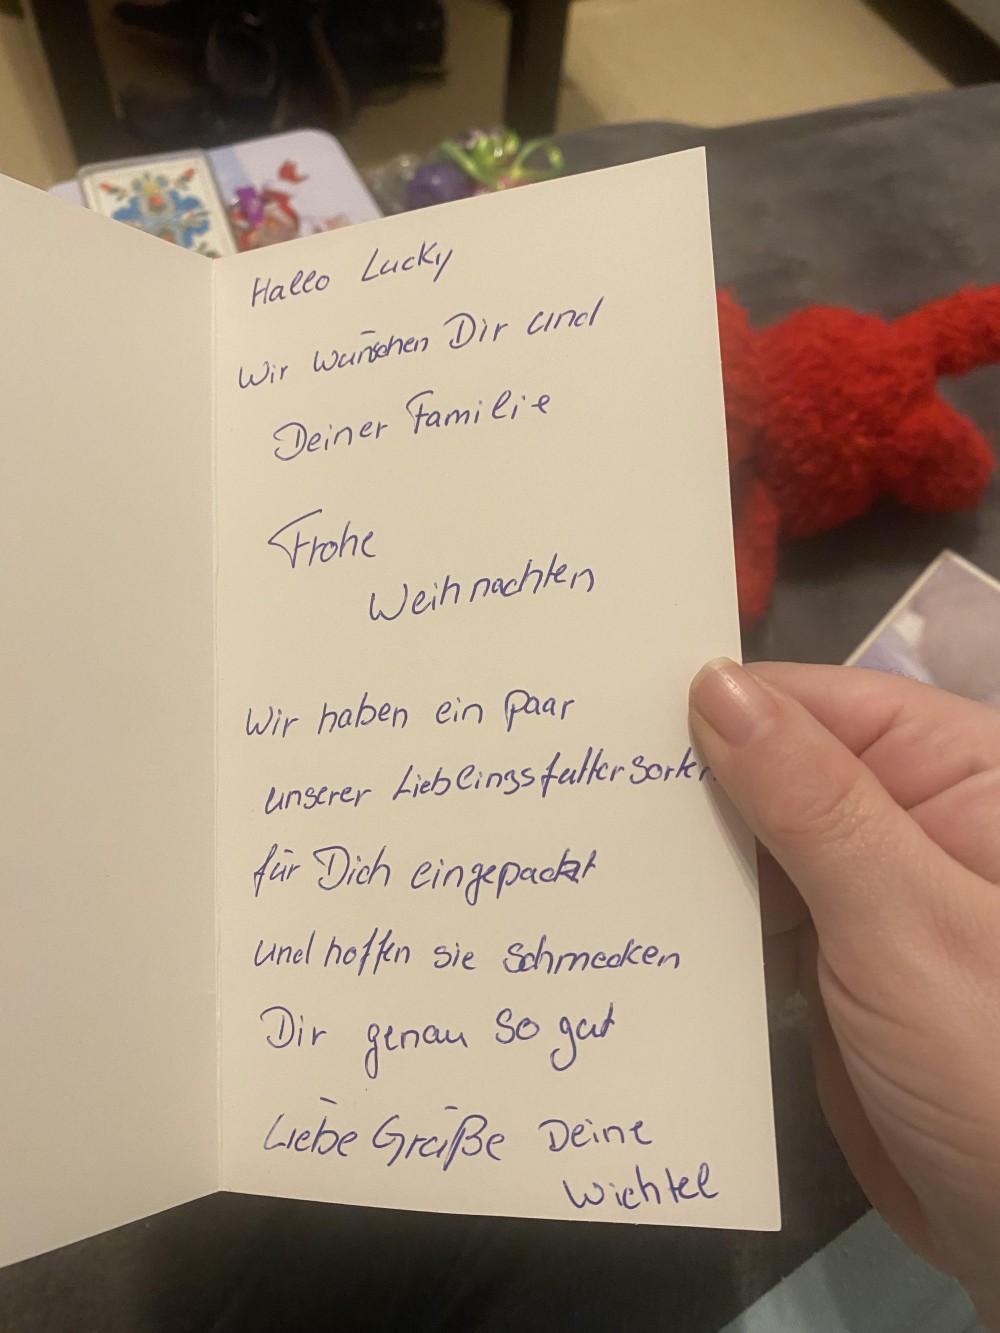 Hallo Lucky
Wir wünschen Dir und
Deiner Familie
Frohe
Weihnachten
Wir haben ein paar
unserer Lieblingsfuttersorten
für Dich eingepackt
und hoffen sie schmecken
Dir genau so gut
Liebe Grüße Deine
Wichtel